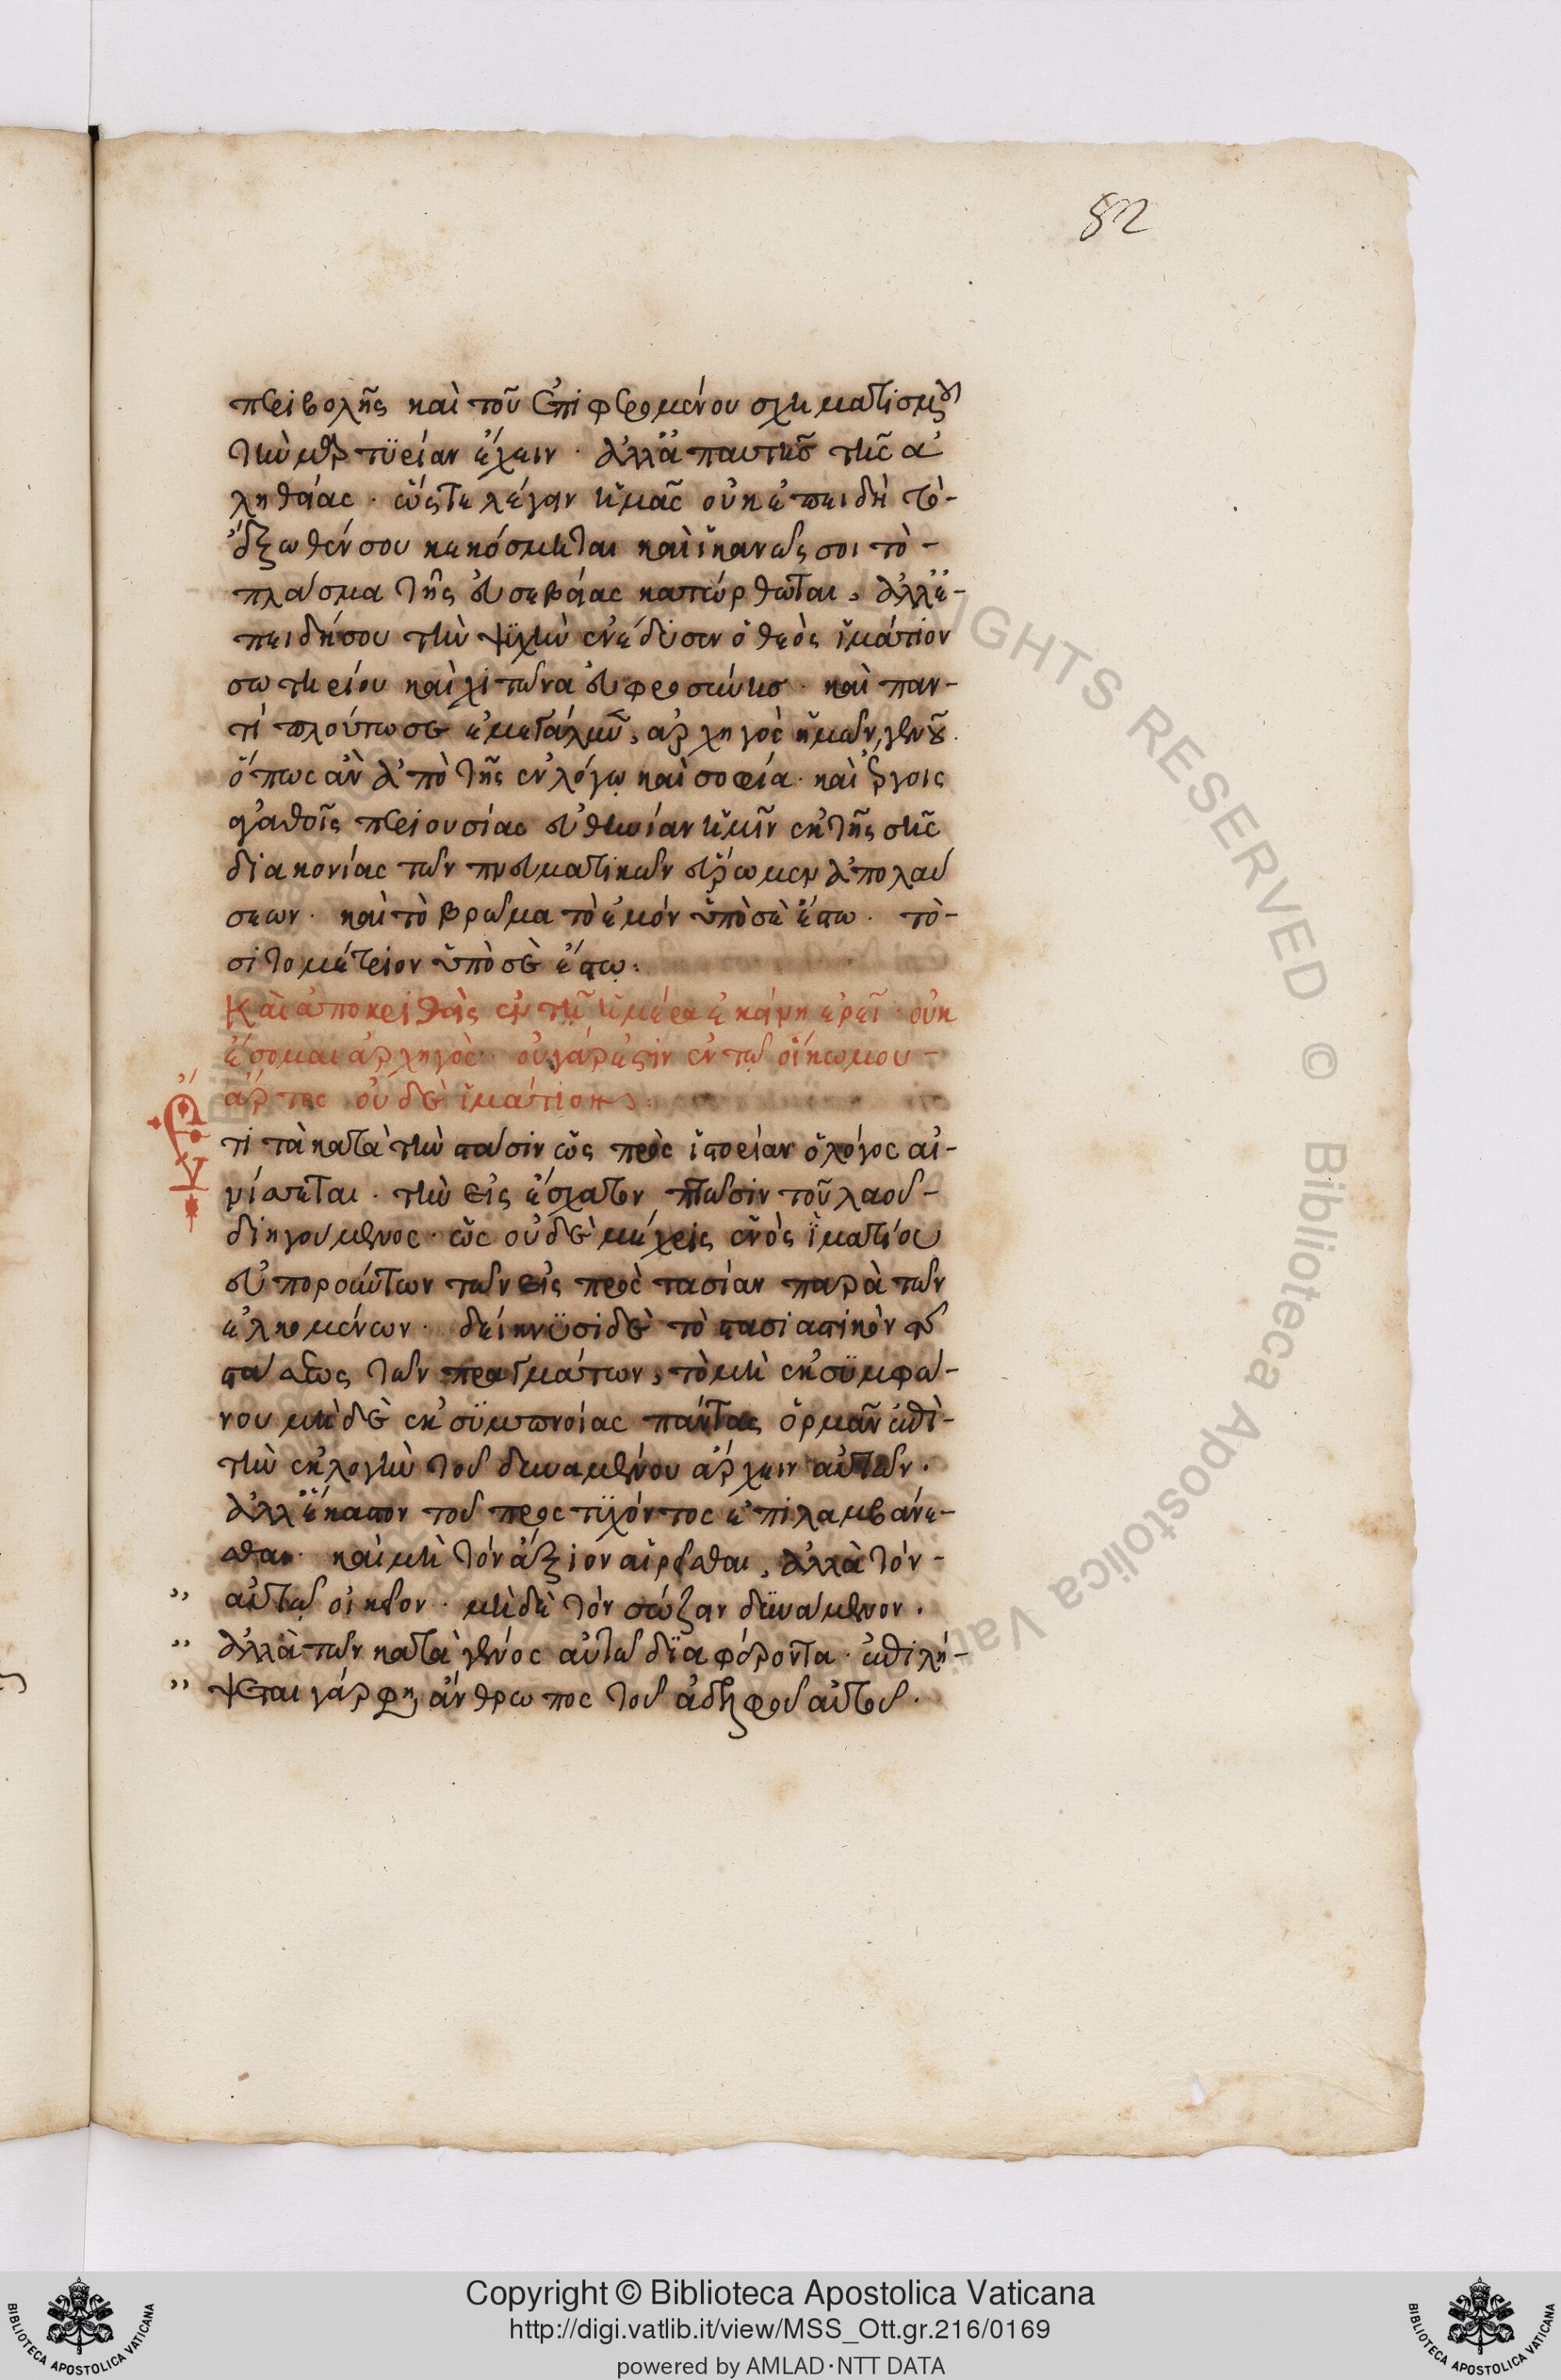 82
περιβολῆς καὶ τοῦ ἐπιφερομένου σχηματισμοῦ
τὴν μαρτυρίαν ἔχειν· ἀλλ' ἀπ' αὐτῆς τῆς ἀ
ληθείας· ὥστε λέγειν ἡμᾶς οὐκ ἐπειδὴ τὸ-
ἔξωθέν σου κεκόσμηται καὶ ἱκανῶς σοι τὸ-
πλάσμα τῆς εὐσεβείας κατώρθωται, ἀλλ' ἐ-
πειδή σου τὴν ψυχὴν ἐνέδυσεν ὁ θεὸς ἱμάτιον
σωτηρίου καὶ χιτῶνα εὐφροσύνης· καὶ παν-
τὶ πλούτω σε ἀρχηγὸς ἡμῶν γενοῦ.
ὅπως ἂν ἀπὸ τῆς ἐν λόγῳ καὶ σοφία· καὶ ἔργοις
ἀγαθοῖς περιουσίας εὐθηνίαν ἡμῖν ἐκ τῆς σῆς
διακονίας τῶν πνευματικῶν εὕρωμεν ἀπολαύ
σεων· καὶ τὸ βρῶμα τὸ ἐμὸν ὑπὸ σὲ ἔστω· τὸ-
σιτομέτριον ὑπὸ σὲ ἔστω:
Καὶ ἀποκριθεὶς ἐν τῇ ἡμέρα ἐκείνη ἐρεῖ· οὐκ
ἔσομαι ἀρχηγὸς· οὐ γάρ ἐστιν ἐν τῷ οἴκω μου-
ἄρτος οὐδὲ ἱμάτιον
Ἔτι τὰ κατὰ τὴν στάσιν ὡς πρὸς ἱστορίαν ὁ λόγος αἰ-
νίσσεται· τὴν εἰς ἔσχατον πτῶσιν τοῦ λαοῦ-
διηγούμενος· ὡς οὐδὲ μέχρις ἑνὸς ἱματίου
εὐπορούντων τῶν εἰς προστασίαν παρὰ τῶν
ἑλκομένων· δείκνυσι δὲ τὸ στασιαστικὸν τῆς
στάσεως τῶν πραγμάτων, τὸ μὴ ἐκ συμφώ-
νου μηδὲ ἐκ συμπνοίας πάντας ὁρμᾶν ἐπὶ-
τὴν ἐκλογὴν τοῦ δυναμένου ἄρχειν αὐτῶν.
ἀλλ' ἕκαστον τοῦ προστυχόντος ἐπιλαμβάνε-
σθαι· καὶ μὴ τὸν ἄξιον αἱρεῖσθαι, ἀλλὰ τὸν-
" αὐτῷ οἰκεῖον· μηδὲ τὸν σώζειν δυνάμενον.
" ἀλλὰ τῶν κατὰ γένος αὐτῶ διαφέροντα· ἐπιλή-
" ψεται γάρ φη, ἄνθρωπος τοῦ ἀδελφοῦ αὐτοῦ.
ALL RIGHTS RESERVED © Biblioteca Apostolica Vaticana
Copyright © Biblioteca Apostolica Vaticana
http://digi.vatlib.it/view/MSS_Ott.gr.216/0169
powered by AMLAD·NTT DATA
BIBLIOTECA APOSTOLICA VATICANA
BIBLIOTECA APOSTOLICA VATICANA